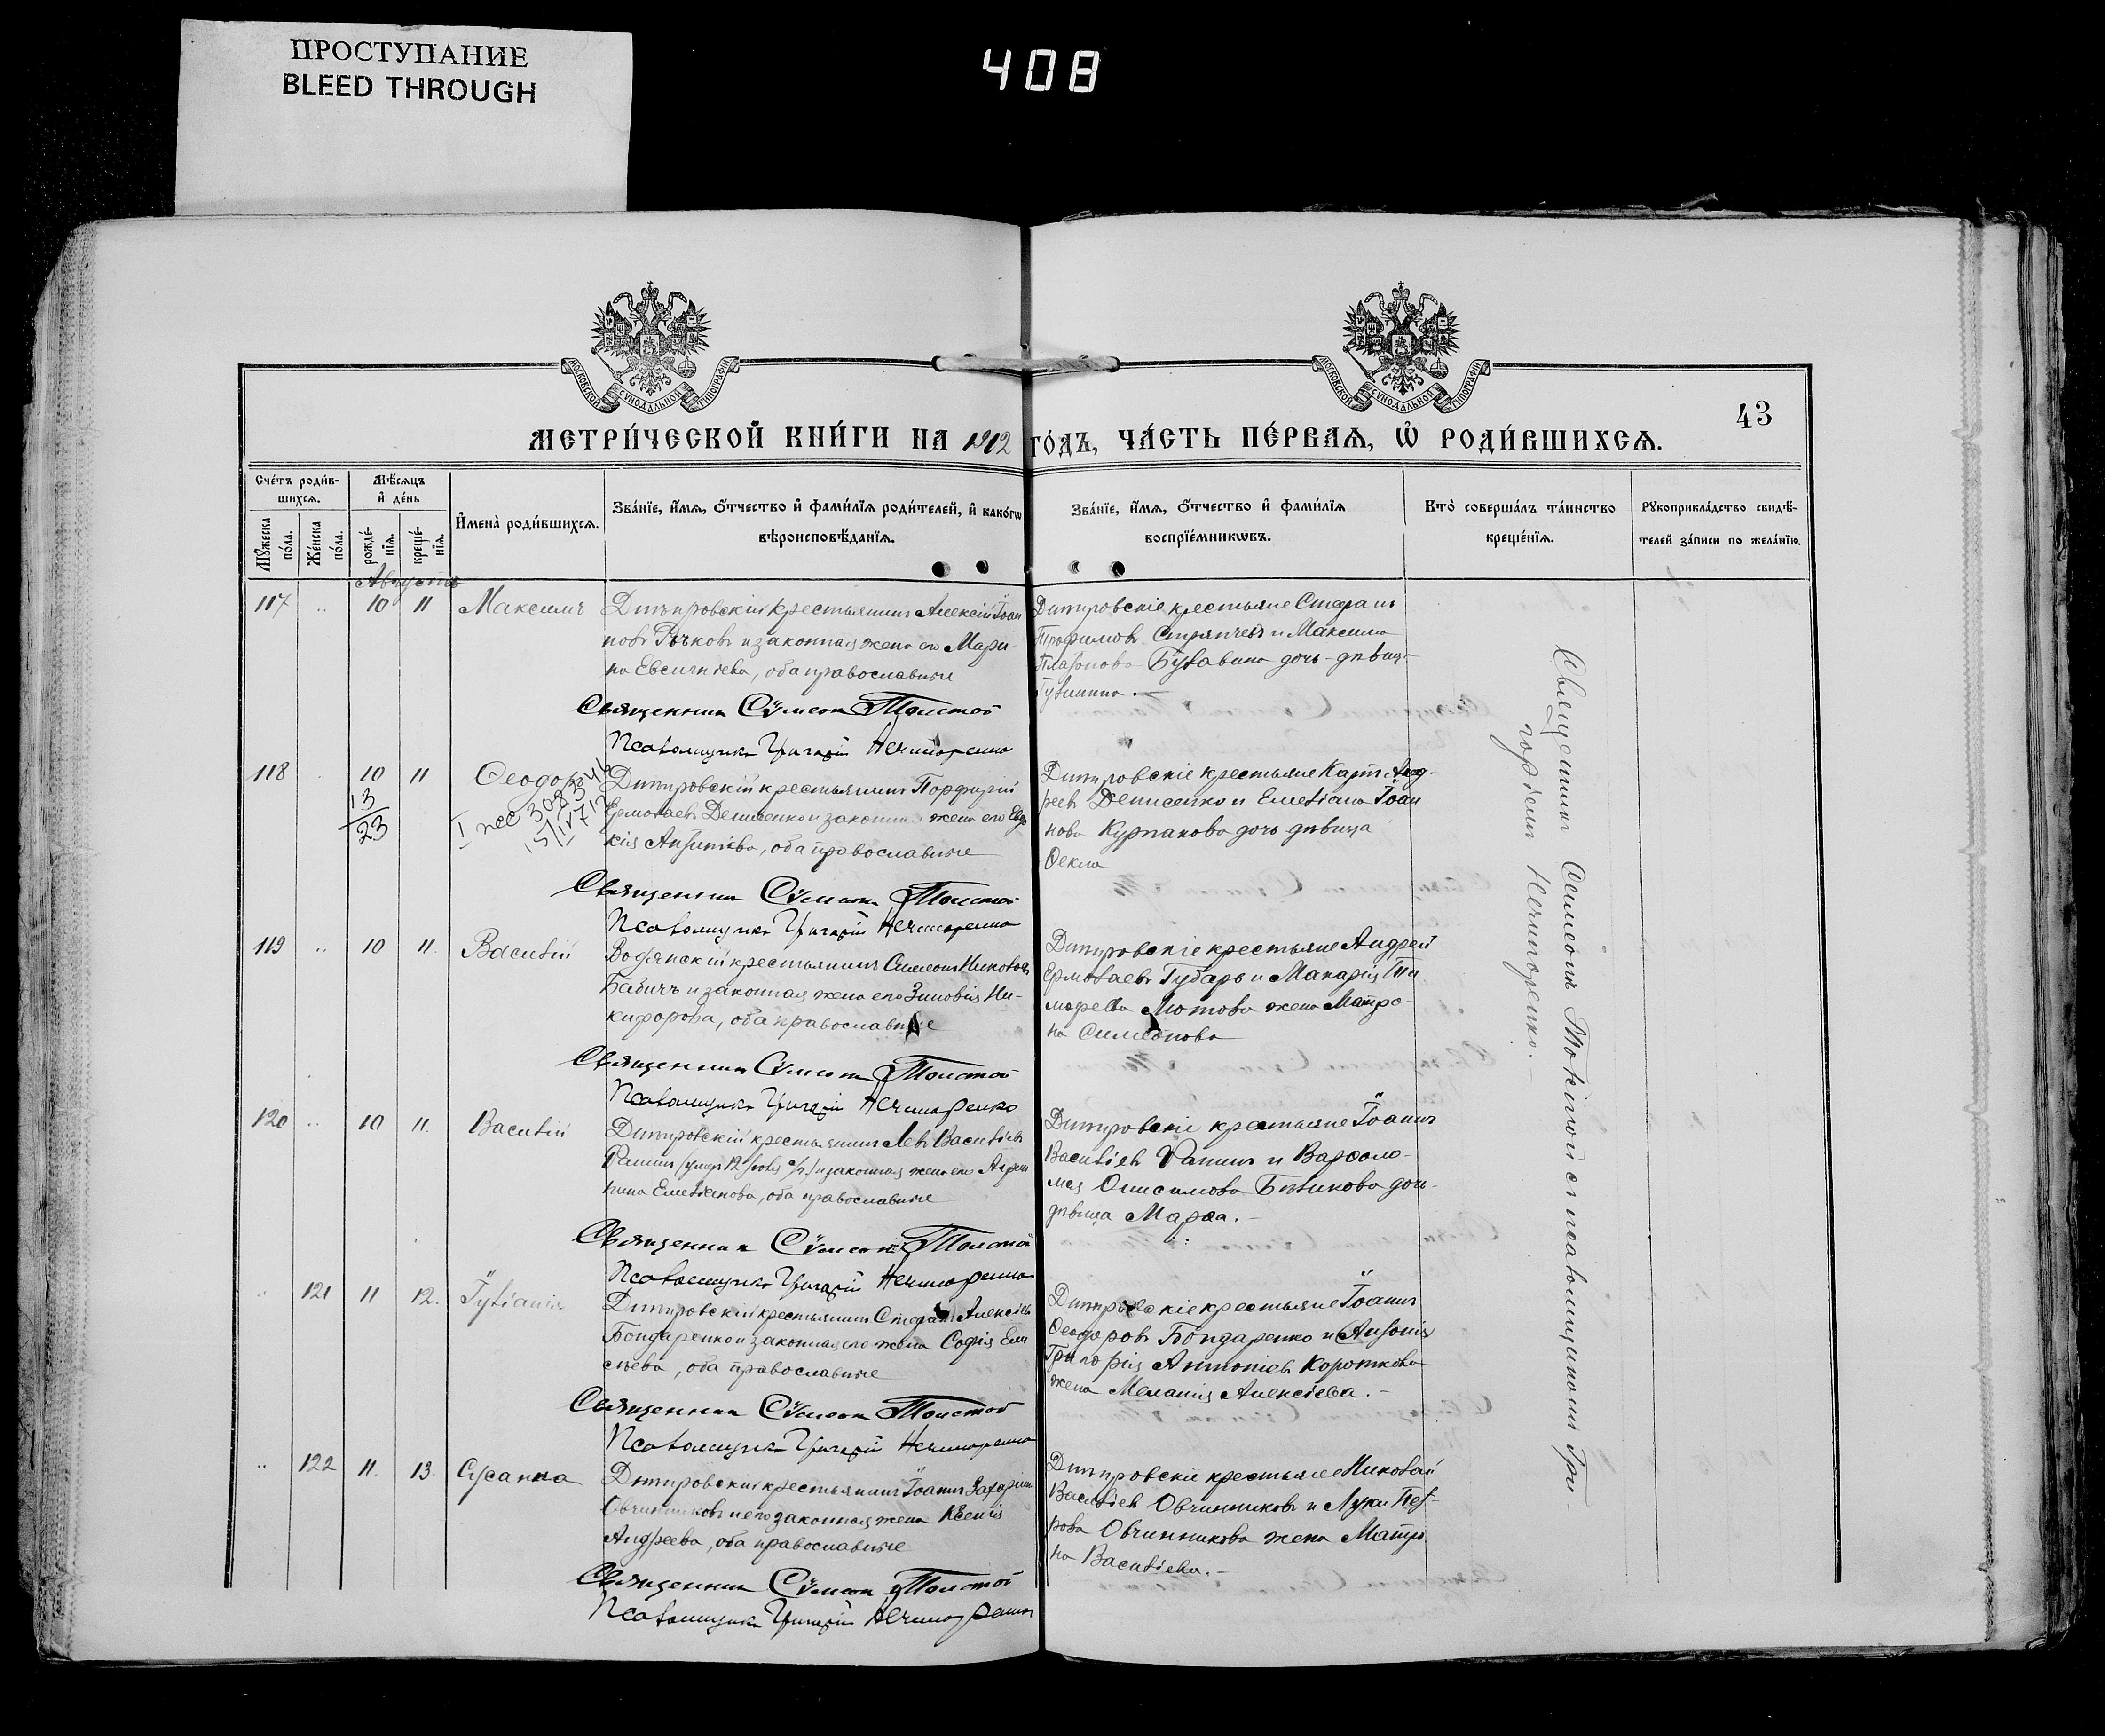 ПРОСТУПАНИЕ
BLEED THROUGH
408
МОСКОВСКОЙ СѴНОДАЛЬНОЙ ТИПОГРАФІИ
МОСКОВСКОЙ СѴНОДАЛЬНОЙ ТИПОГРАФІИ
43
МЕТРИ́ЧЕСКОЙ КНИ́ГИ НА 1912 ГО́ДЪ, ЧА́СТЬ ПЕ́РВАѦ, Ѡ҆ РОДИ́ВШИХСѦ.
Сче́тъ роди́вшихсѧ.
Мꙋ́жеска по́ла.
Же́нска по́ла.
Мѣ́сѧцъ и҆ де́нь
рожде́нїѧ.
креще́нїѧ.
И҆мена̀ роди́вшихсѧ.
Зва́нїе, и҆́мѧ, ѻ҆́тчество и҆ фами́лїѧ роди́телей, и҆ како́гѡ
вѣроисповѣ́данїѧ.
Зва́нїе, и҆́мѧ, ѻ҆́тчество и҆ фами́лїѧ
воспрїе́мникѡвъ.
Кто̀ соверша́лъ та́инство
креще́нїѧ.
Рꙋкоприкла́дство свидѣ́-
телей за́писи по жела́нїю.
Августъ
117 " 10 11 Максимъ
Дмитровскій крестьянинъ Алексій Іоан
новъ Рѣчковъ и законная жена его Мари-
на Евсигніева, оба православные
Священникъ Сѵмеонъ Толстой
Псаломщикъ Григорій Нечипоренко
Дмитровскіе крестьяне Стефанъ
Трофимовъ Стряпчевъ и Максима
Платонова Булавина дочь-дѣвица
118 " 10 11 Ѳеодоръ
13
23
Дмитровскій крестьянинъ Порфирій
Ермолаевъ Денисенко и законная жена его Евдо
кія, оба православные
Священникъ Сѵмеонъ Толстой
Псаломщикъ Григорій Нечипоренко
Дмитровскіе крестьяне Карпъ Анд-
реевъ Денисенко и Емеліана Іоан
нова Курпакова дочь дѣвица
Ѳекла
119 " 10 11. Василій
Водянскій крестьянинъ Симеонъ Николаевъ
Бабичъ и законная жена его Зиновія Ни-
кифорова, оба православные
Священникъ Сѵмеонъ Толстой
Псаломщикъ Григорій Нечипоренко
Дмитровскіе крестьяне Андрей
Ермолаевъ Губарь и Макарія Ти
мофеева Лютова жена Матро-
на Симеонова
120 " 10 11. Василій
Дмитровскій крестьянинъ Левъ Васильевъ
и законная жена его Агрип
пина Емеліанова, оба православные
Священникъ Сѵмеонъ Толстой
Псаломщикъ Григорій Нечипоренко
Дмитровскіе крестьяне Іоаннъ
Васильевъ и Варѳоло-
мея Онисимова Бѣликова дочь-
дѣвица Марѳа.-
" 121 11 12. Іуліанія
Дмитровскій крестьянинъ Стефанъ Алексіевъ
Бондаренко и законная его жена Софія Ели
сѣева, оба православные
Священникъ Сѵмеонъ Толстой
Псаломщикъ Григорій Нечипоренко
Дмитровскіе крестьяне Іоаннъ
Ѳеодоровъ Бондаренко и
Григорія Антоніевъ Короткова
жена Меланія Алексіева.-
" 122 11. 13. Сусанна
Дмитровскій крестьянинъ Іоаннъ Захаріинъ
Овчинниковъ и его законная жена Ксенія
Андреева, оба православные
Священникъ Сѵмеонъ Толстой
Псаломщикъ Григорій Нечипоренко
Дмитровскіе крестьяне Николай
Васильевъ Овчинниковъ и Луки Пет-
рова Овчинникова жена Матро
на Васильева.-
Священникъ Симеонъ Толстой съ псаломщикомъ Гри-
горіемъ Нечипоренко.-